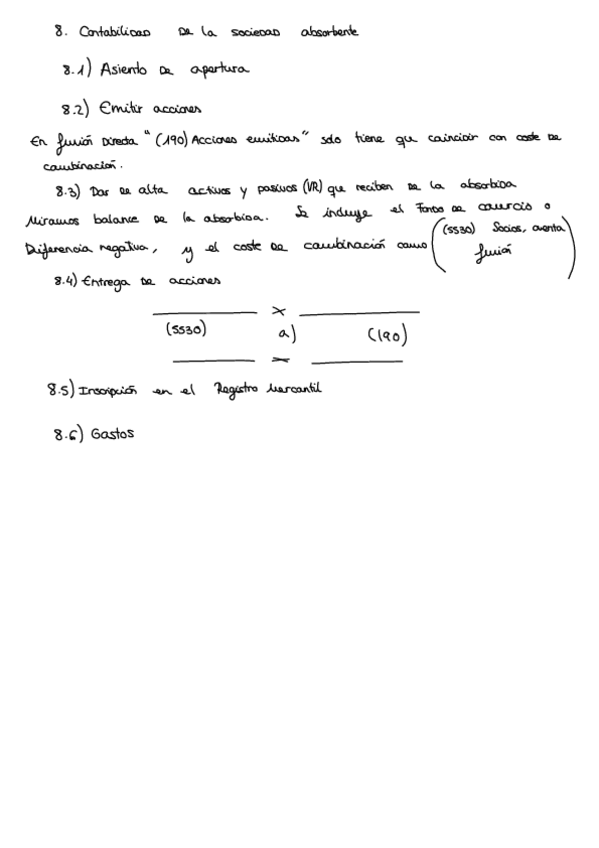 8. Contabilidad de la sociedad absorbente
8.1) Asiento de apertura
8.2) Emitir acciones
En fusión directa "(190) Acciones emitidas" solo tiene que coincidir con coste de
combinación.
8.3) Dar de alta activos y pasivos (VR) que reciben de la absorbida
Miramos balance de la absorbida. Se incluye el Fondo de comercio o
Diferencia negativa, y el coste de combinación como (5530) Socios, cuenta
fusión
8.4) Entrega de acciones
x
(5530) a) (190)
x
8.5) Inscripción en el Registro Mercantil
8.6) Gastos